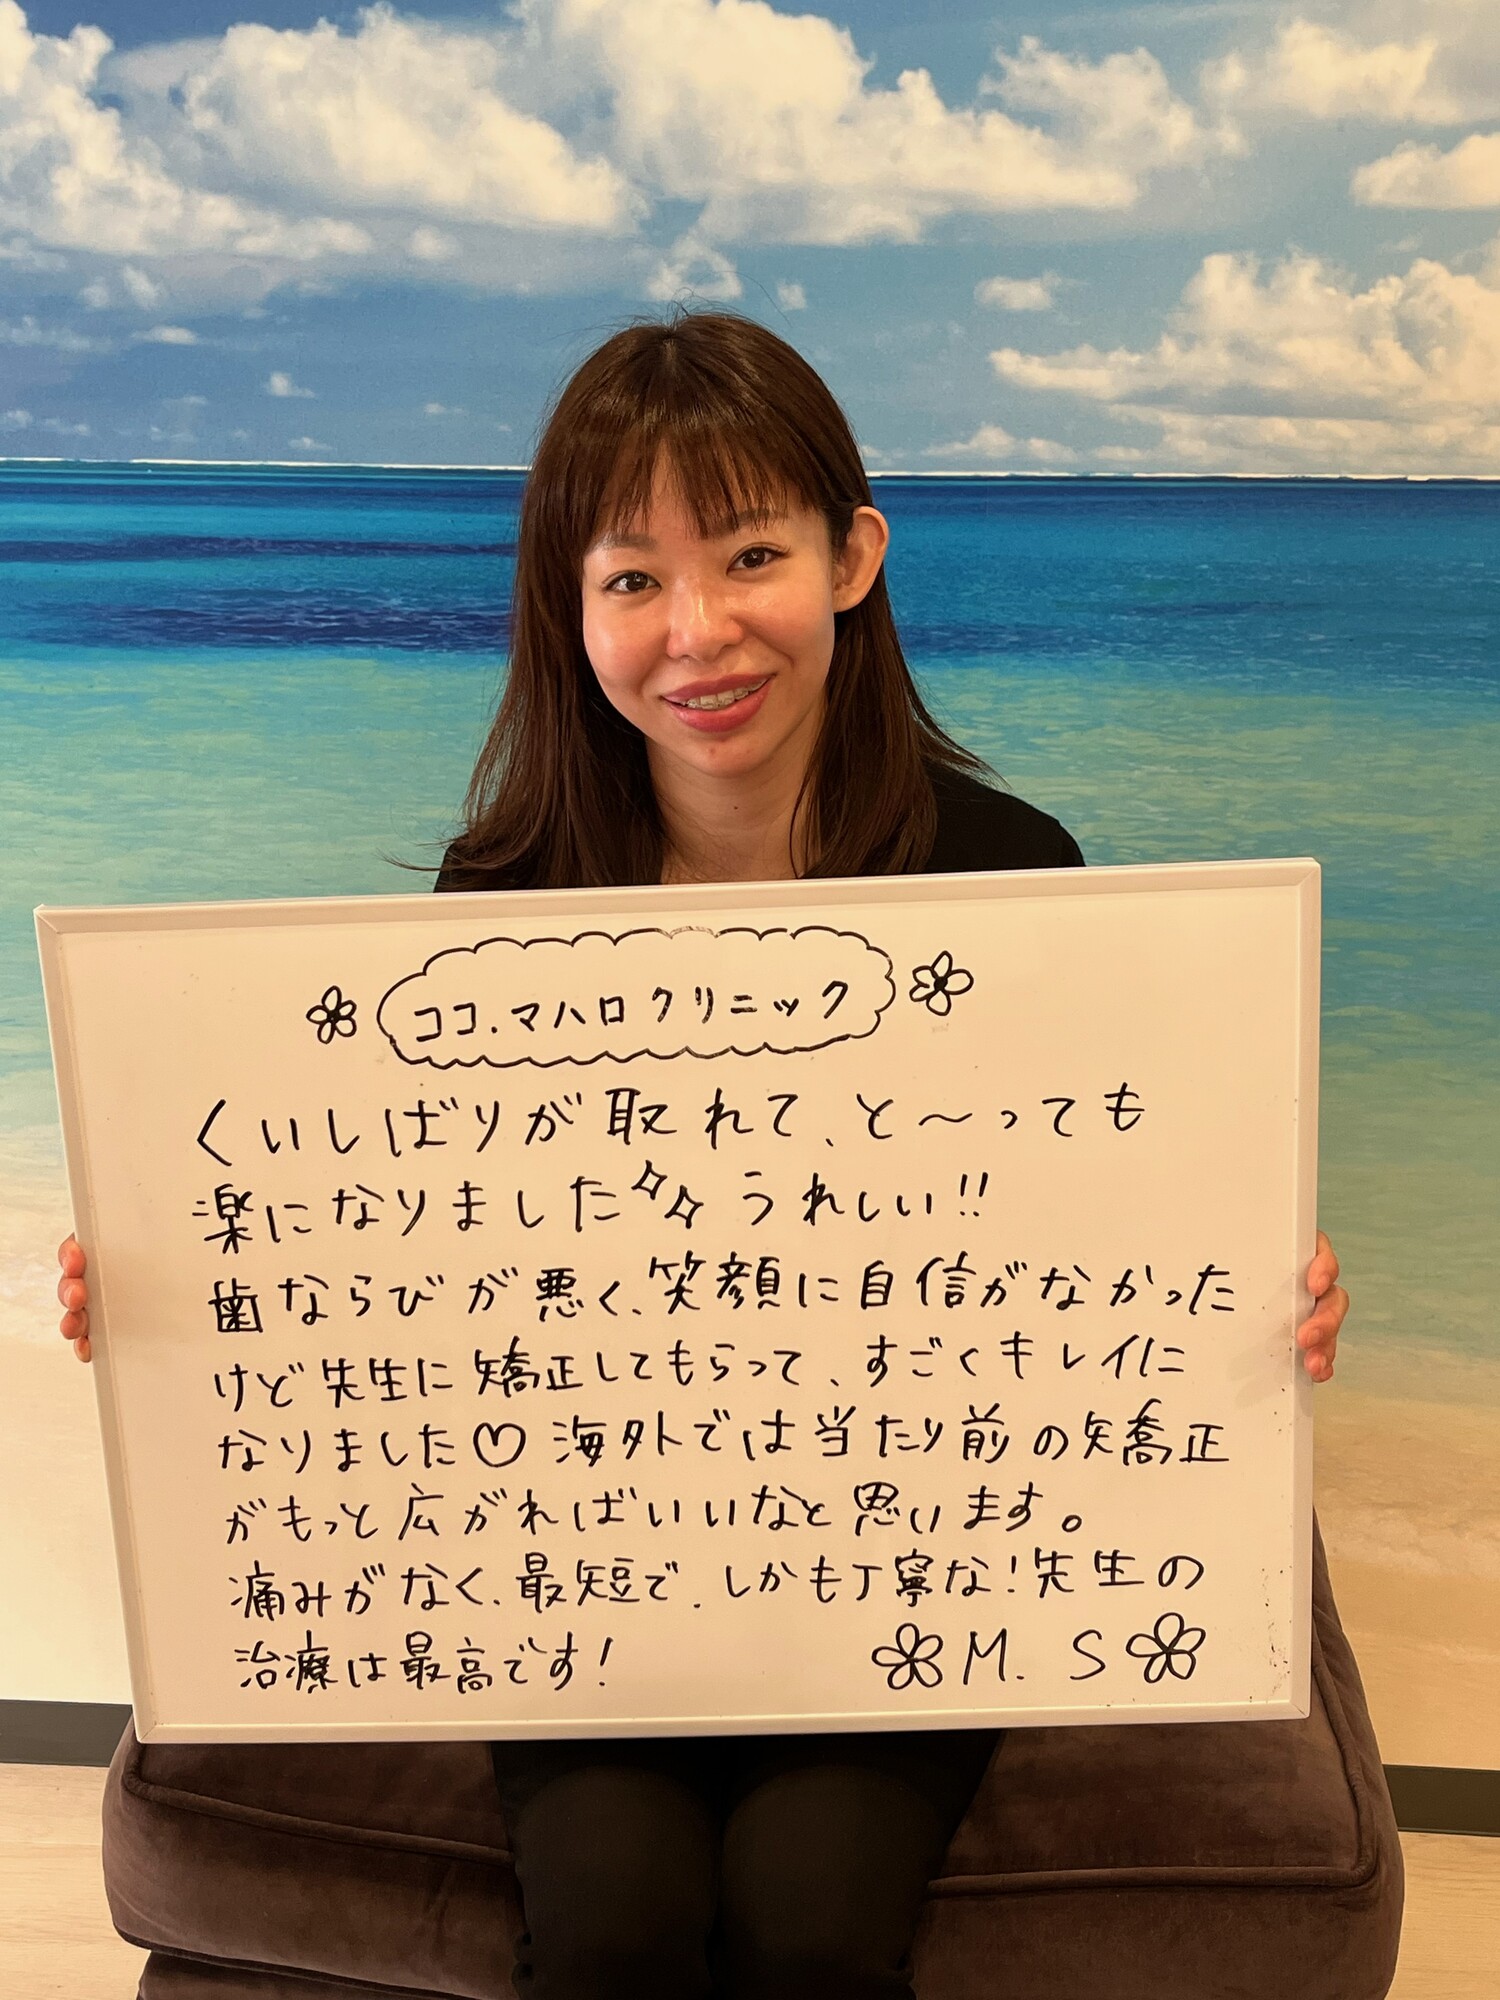 ココ.マハロクリニック
くいしばりが取れて、と〜っても
楽になりました うれしい!!
歯ならびが悪く、笑顔に自信がなかった
けど先生に矯正してもらって、すごくキレイに
なりました♡海外では当たり前の矯正
がもっと広がればいいなと思います。
痛みがなく、最短で、しかも丁寧な!先生の
治療は最高です!
M. S